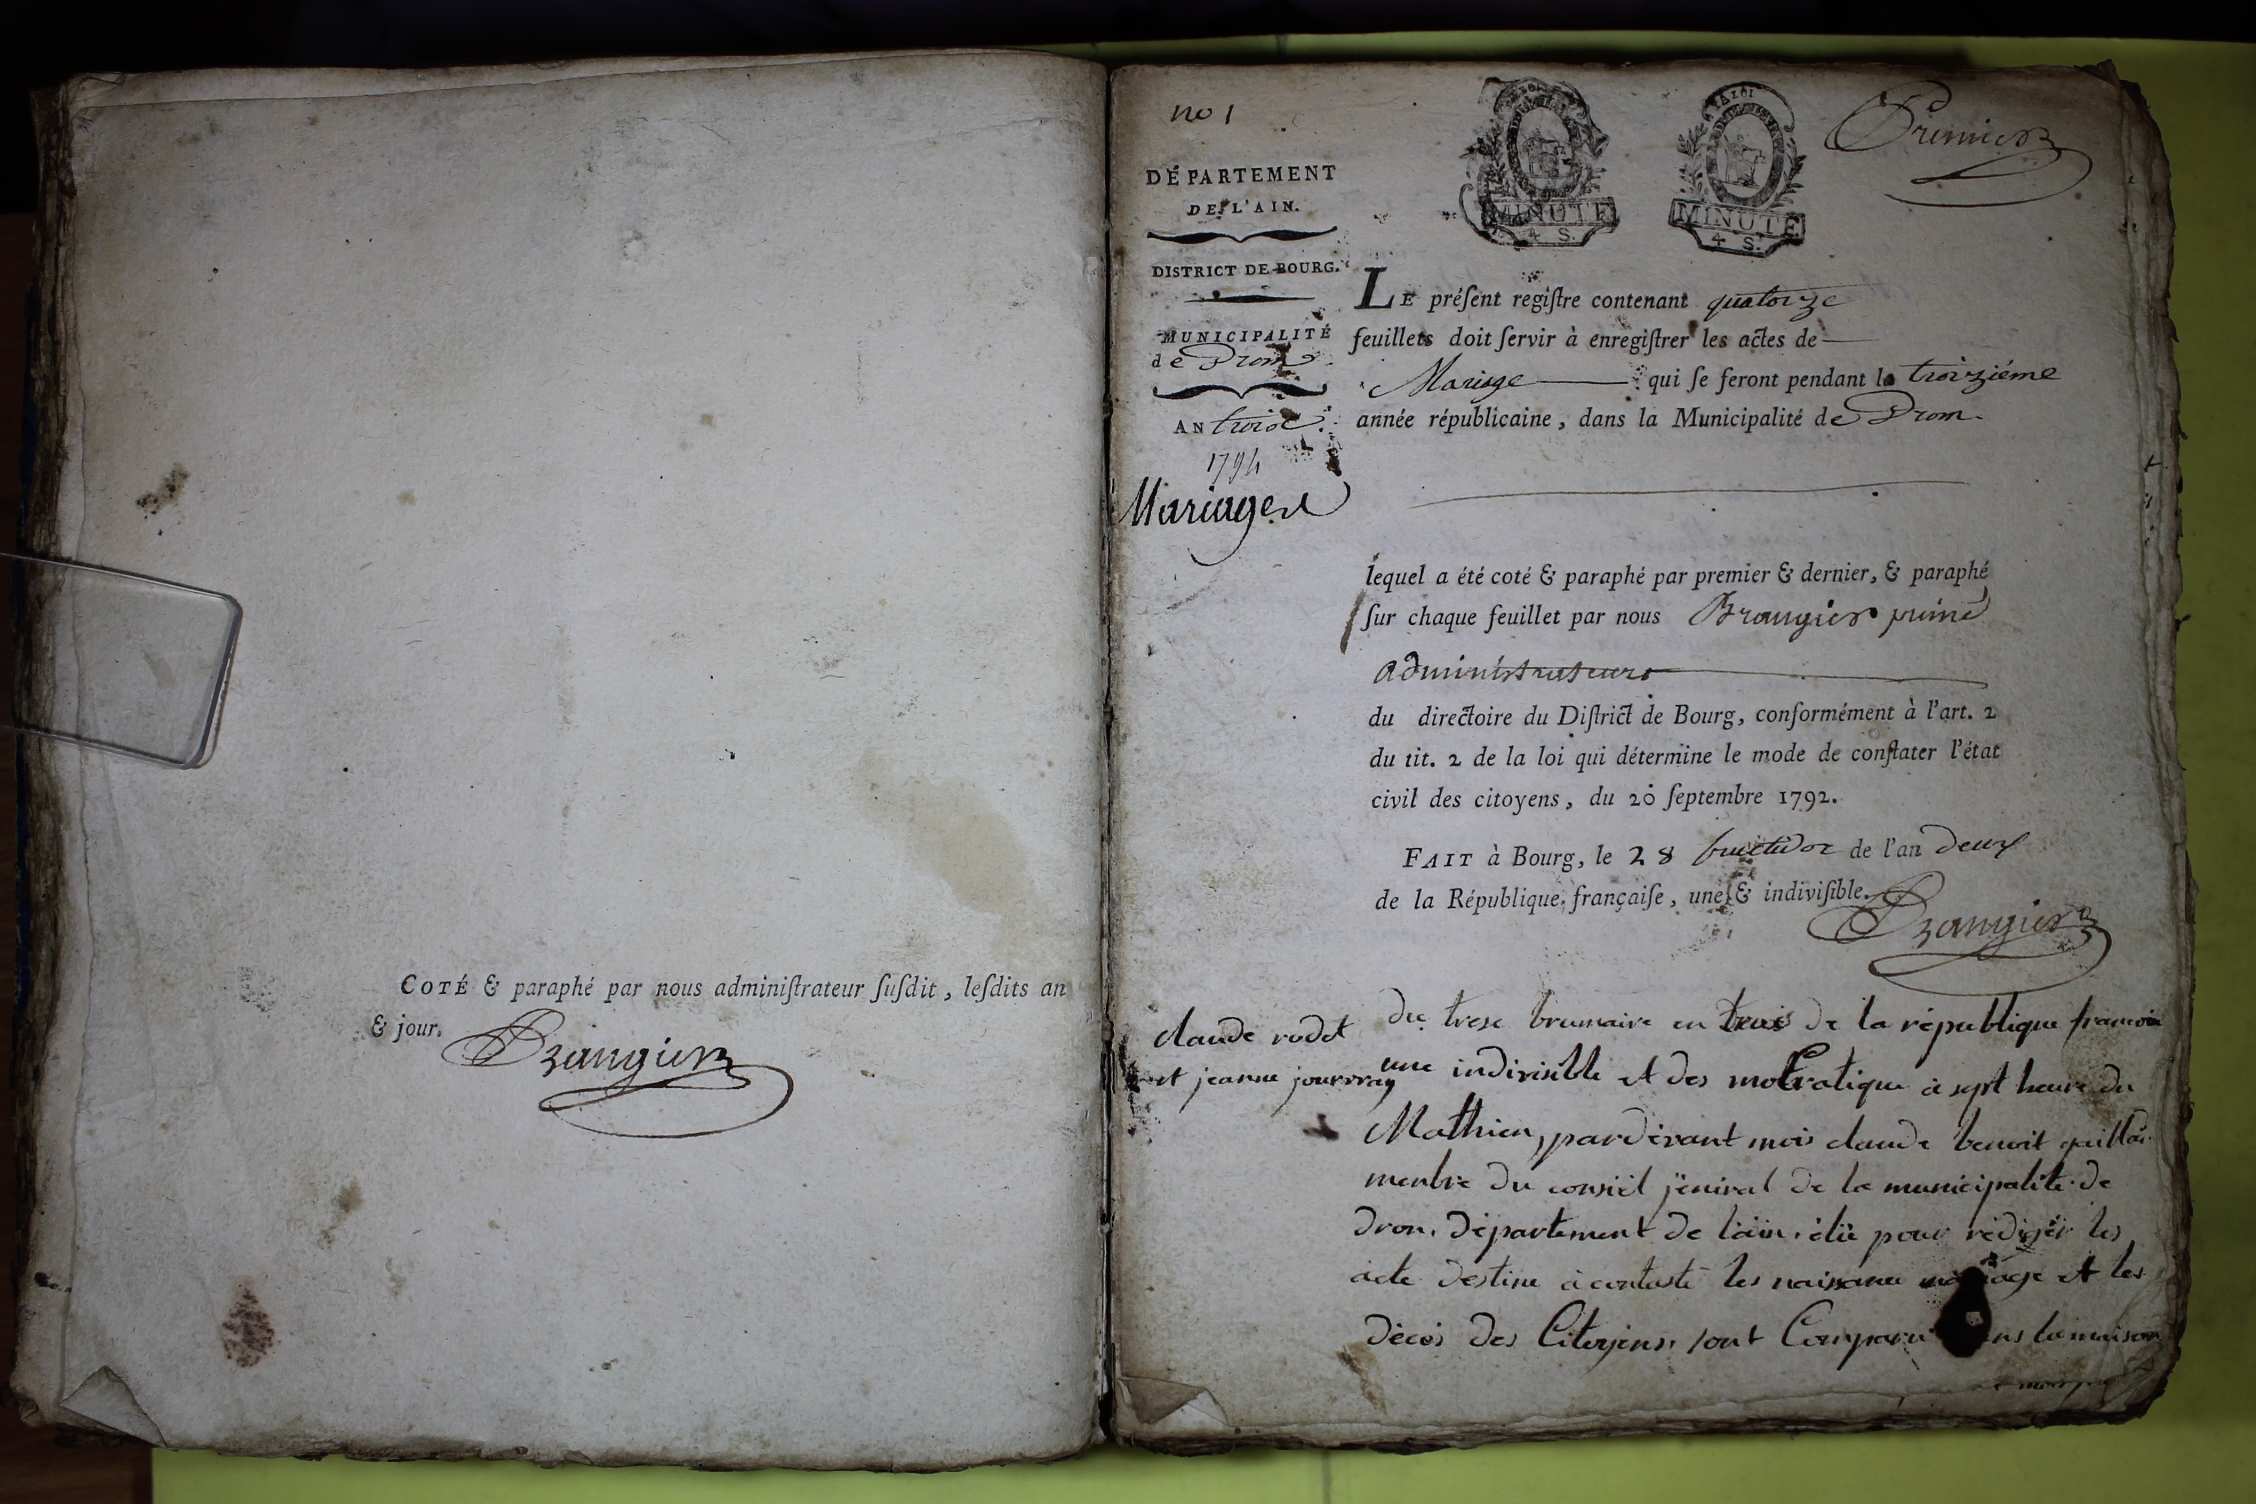 COTÉ & paraphé par nous adminiſtrateur ſuſdit, leſdits an
& jour.
Brangier
no 1
Premier
MINUTE
4 S.
MINUTE
4 S.
DÉPARTEMENT
DE L'AIN.
DISTRICT DE BOURG.
MUNICIPALITÉ
de Drom
AN trois.
1794
Mariages
LE préſent regiſtre contenant quatorze
feuillets doit ſervir à enregiſtrer les actes de
Mariage qui ſe feront pendant la troiziéme
année républicaine, dans la Municipalité de Drom.
lequel a été coté & paraphé par premier & dernier, & paraphé
ſur chaque feuillet par nous Brangier puiné
administrateur
du directoire du Diſtrict de Bourg, conformément à l'art. 2
du tit. 2 de la loi qui détermine le mode de conſtater l'état
civil des citoyens, du 20 ſeptembre 1792.
FAIT à Bourg, le 28 fructidor de l'an deux
de la République françaiſe, une & indiviſible.
Brangier
claude rodet
et jeanne
du trese brumaire en trois de la république francoise
une indivisible et des mocratique à sept heure du
Mathien, pardevant mois claude benoit
menbre du consiel jéniral de la municipalité de
dron. département de l'äin. élü pour rédiger les
acte destine à contasté les naissance mariage et les
décés des Citoyens. sont Comparu dans la maison